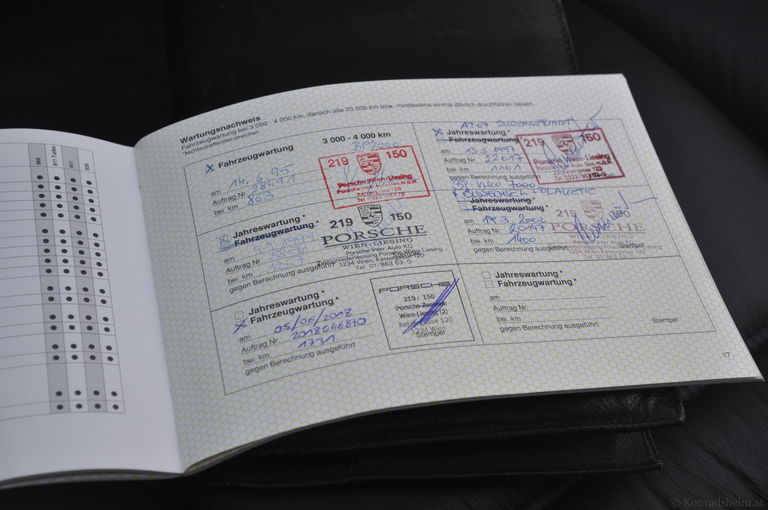 968
911 Turbo
911
928
Wartungsnachweis
Fahrzeugwartung bei 3 000 - 4 000 km, danach alle 20 000 km bzw. mindestens einmal jährlich durchführen lassen.
Nichtzutreffendes streichen
Fahrzeugwartung
3 000 - 4 000 km
am 14.6.95
Auftrag Nr.
bei km 863
219 150
Porsche Wien-Liesing
Jahreswartung*
Fahrzeugwartung*
am
Auftrag Nr.
bei km
gegen Berechnung ausgeführt
219 150
PORSCHE
WIEN-LIESING
Porsche Inter Auto KG
Zweigniederlassung Porsche Wien-Liesing
1234 Wien, Ketzergasse 120
Tel. 01/863 63-0
Jahreswartung*
Fahrzeugwartung*
am 05/06/2018
Auftrag Nr. 2018046870
bei km 1731
gegen Berechnung ausgeführt
PORSCHE
219 / 150
Porsche Zentrum
Wien-Liesing (2)
Ketzergasse 120
1234 Wien
Stempel
Jahreswartung*
Fahrzeugwartung*
am 13.5.1997
Auftrag Nr. 22017
bei km 1101
gegen Berechnung ausgeführt
219 150
Porsche Wien-Liesing
Jahreswartung*
Fahrzeugwartung*
am 14.3.2002
Auftrag Nr. 20147
bei km 1400
gegen Berechnung ausgeführt
219
PORSCHE
Stempel
Jahreswartung*
Fahrzeugwartung*
am
Auftrag Nr.
bei km
gegen Berechnung ausgeführt
Stempel
17
© Konradsheim.at